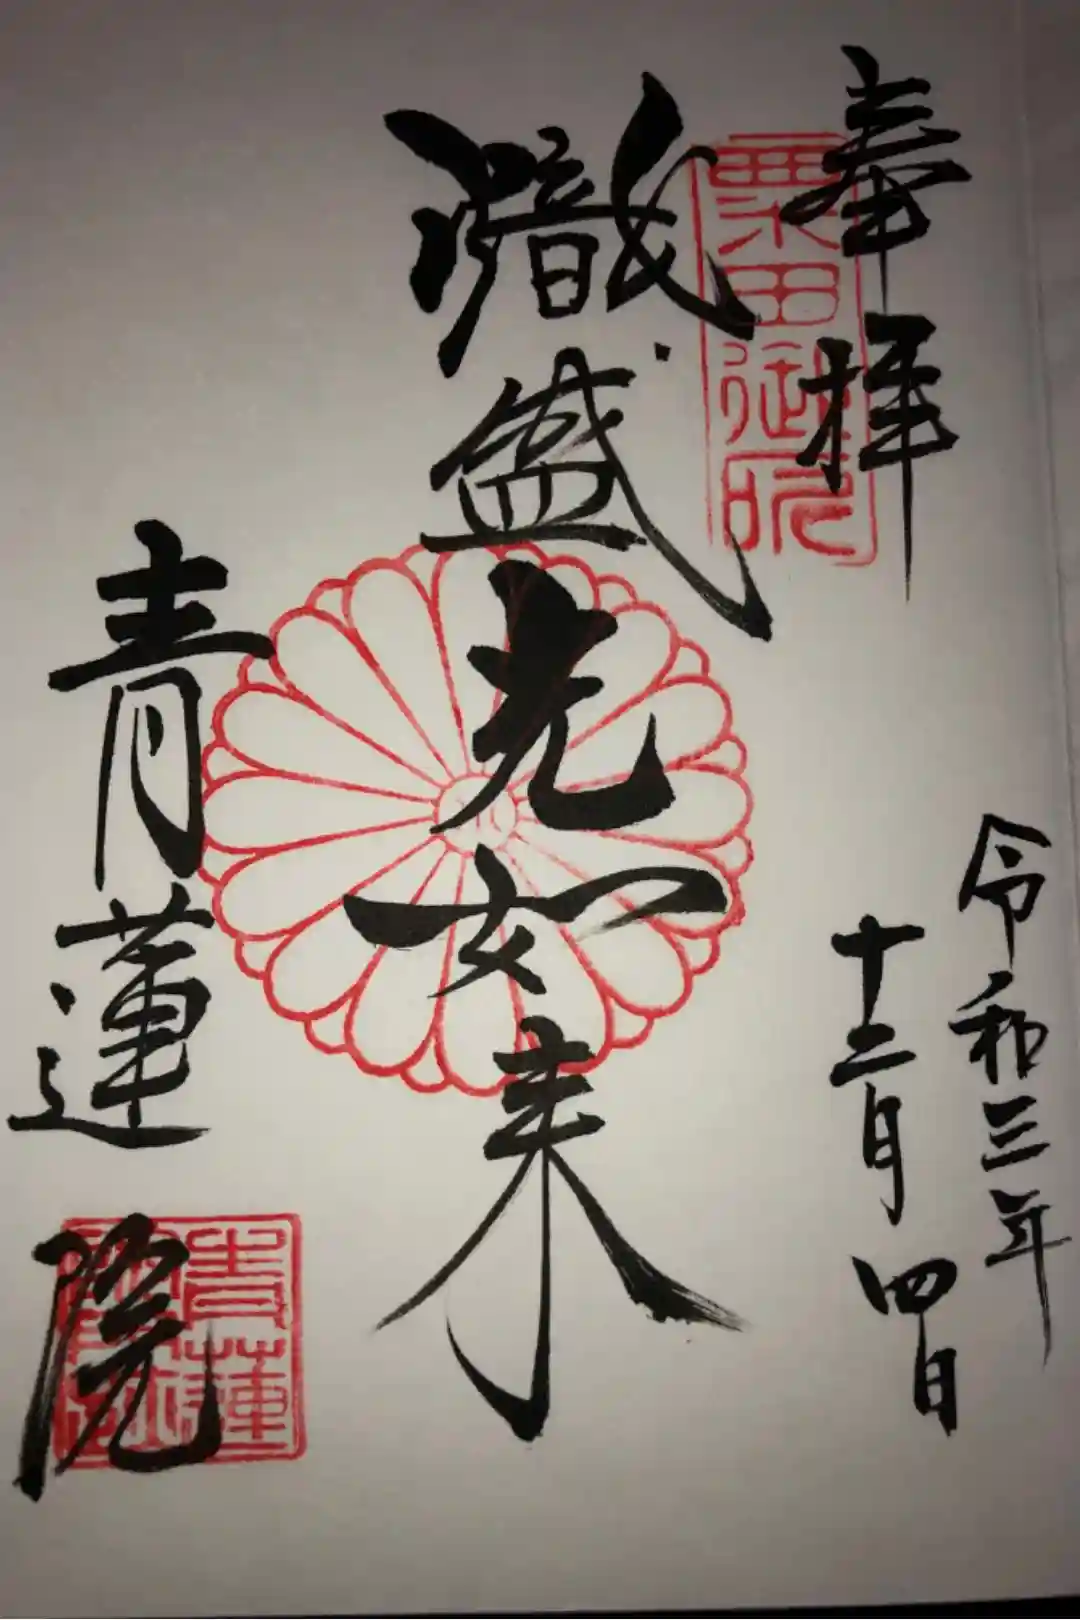 奉拝
粟田御所
令和三年
十二月四日
熾盛光如来
青蓮院
青蓮